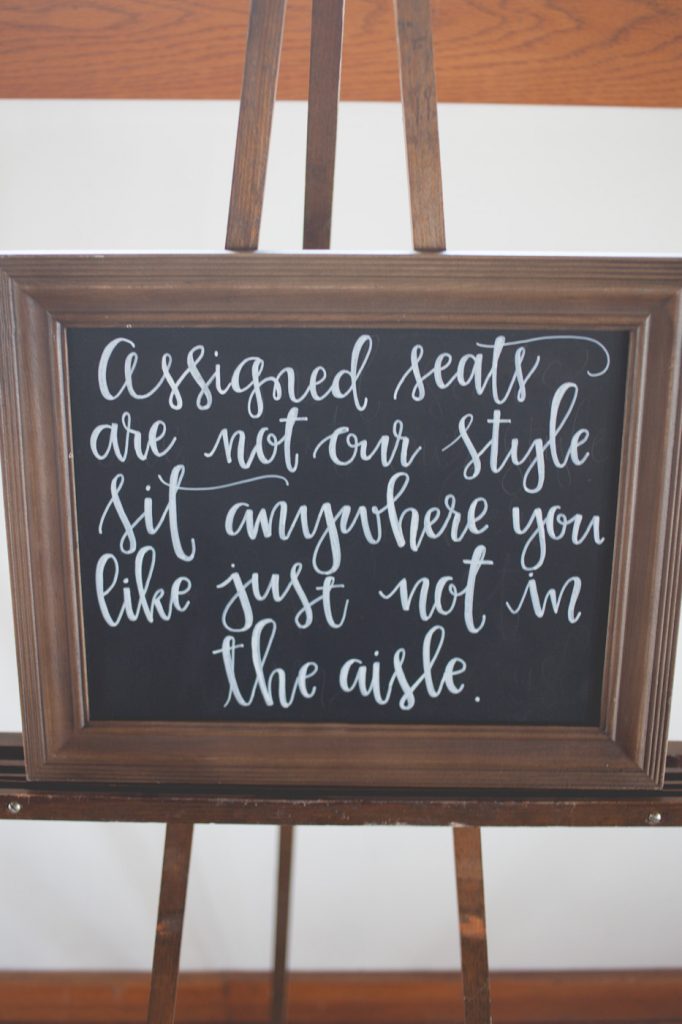 Assigned seats
are not our style
sit anywhere you
like just not in
the aisle.